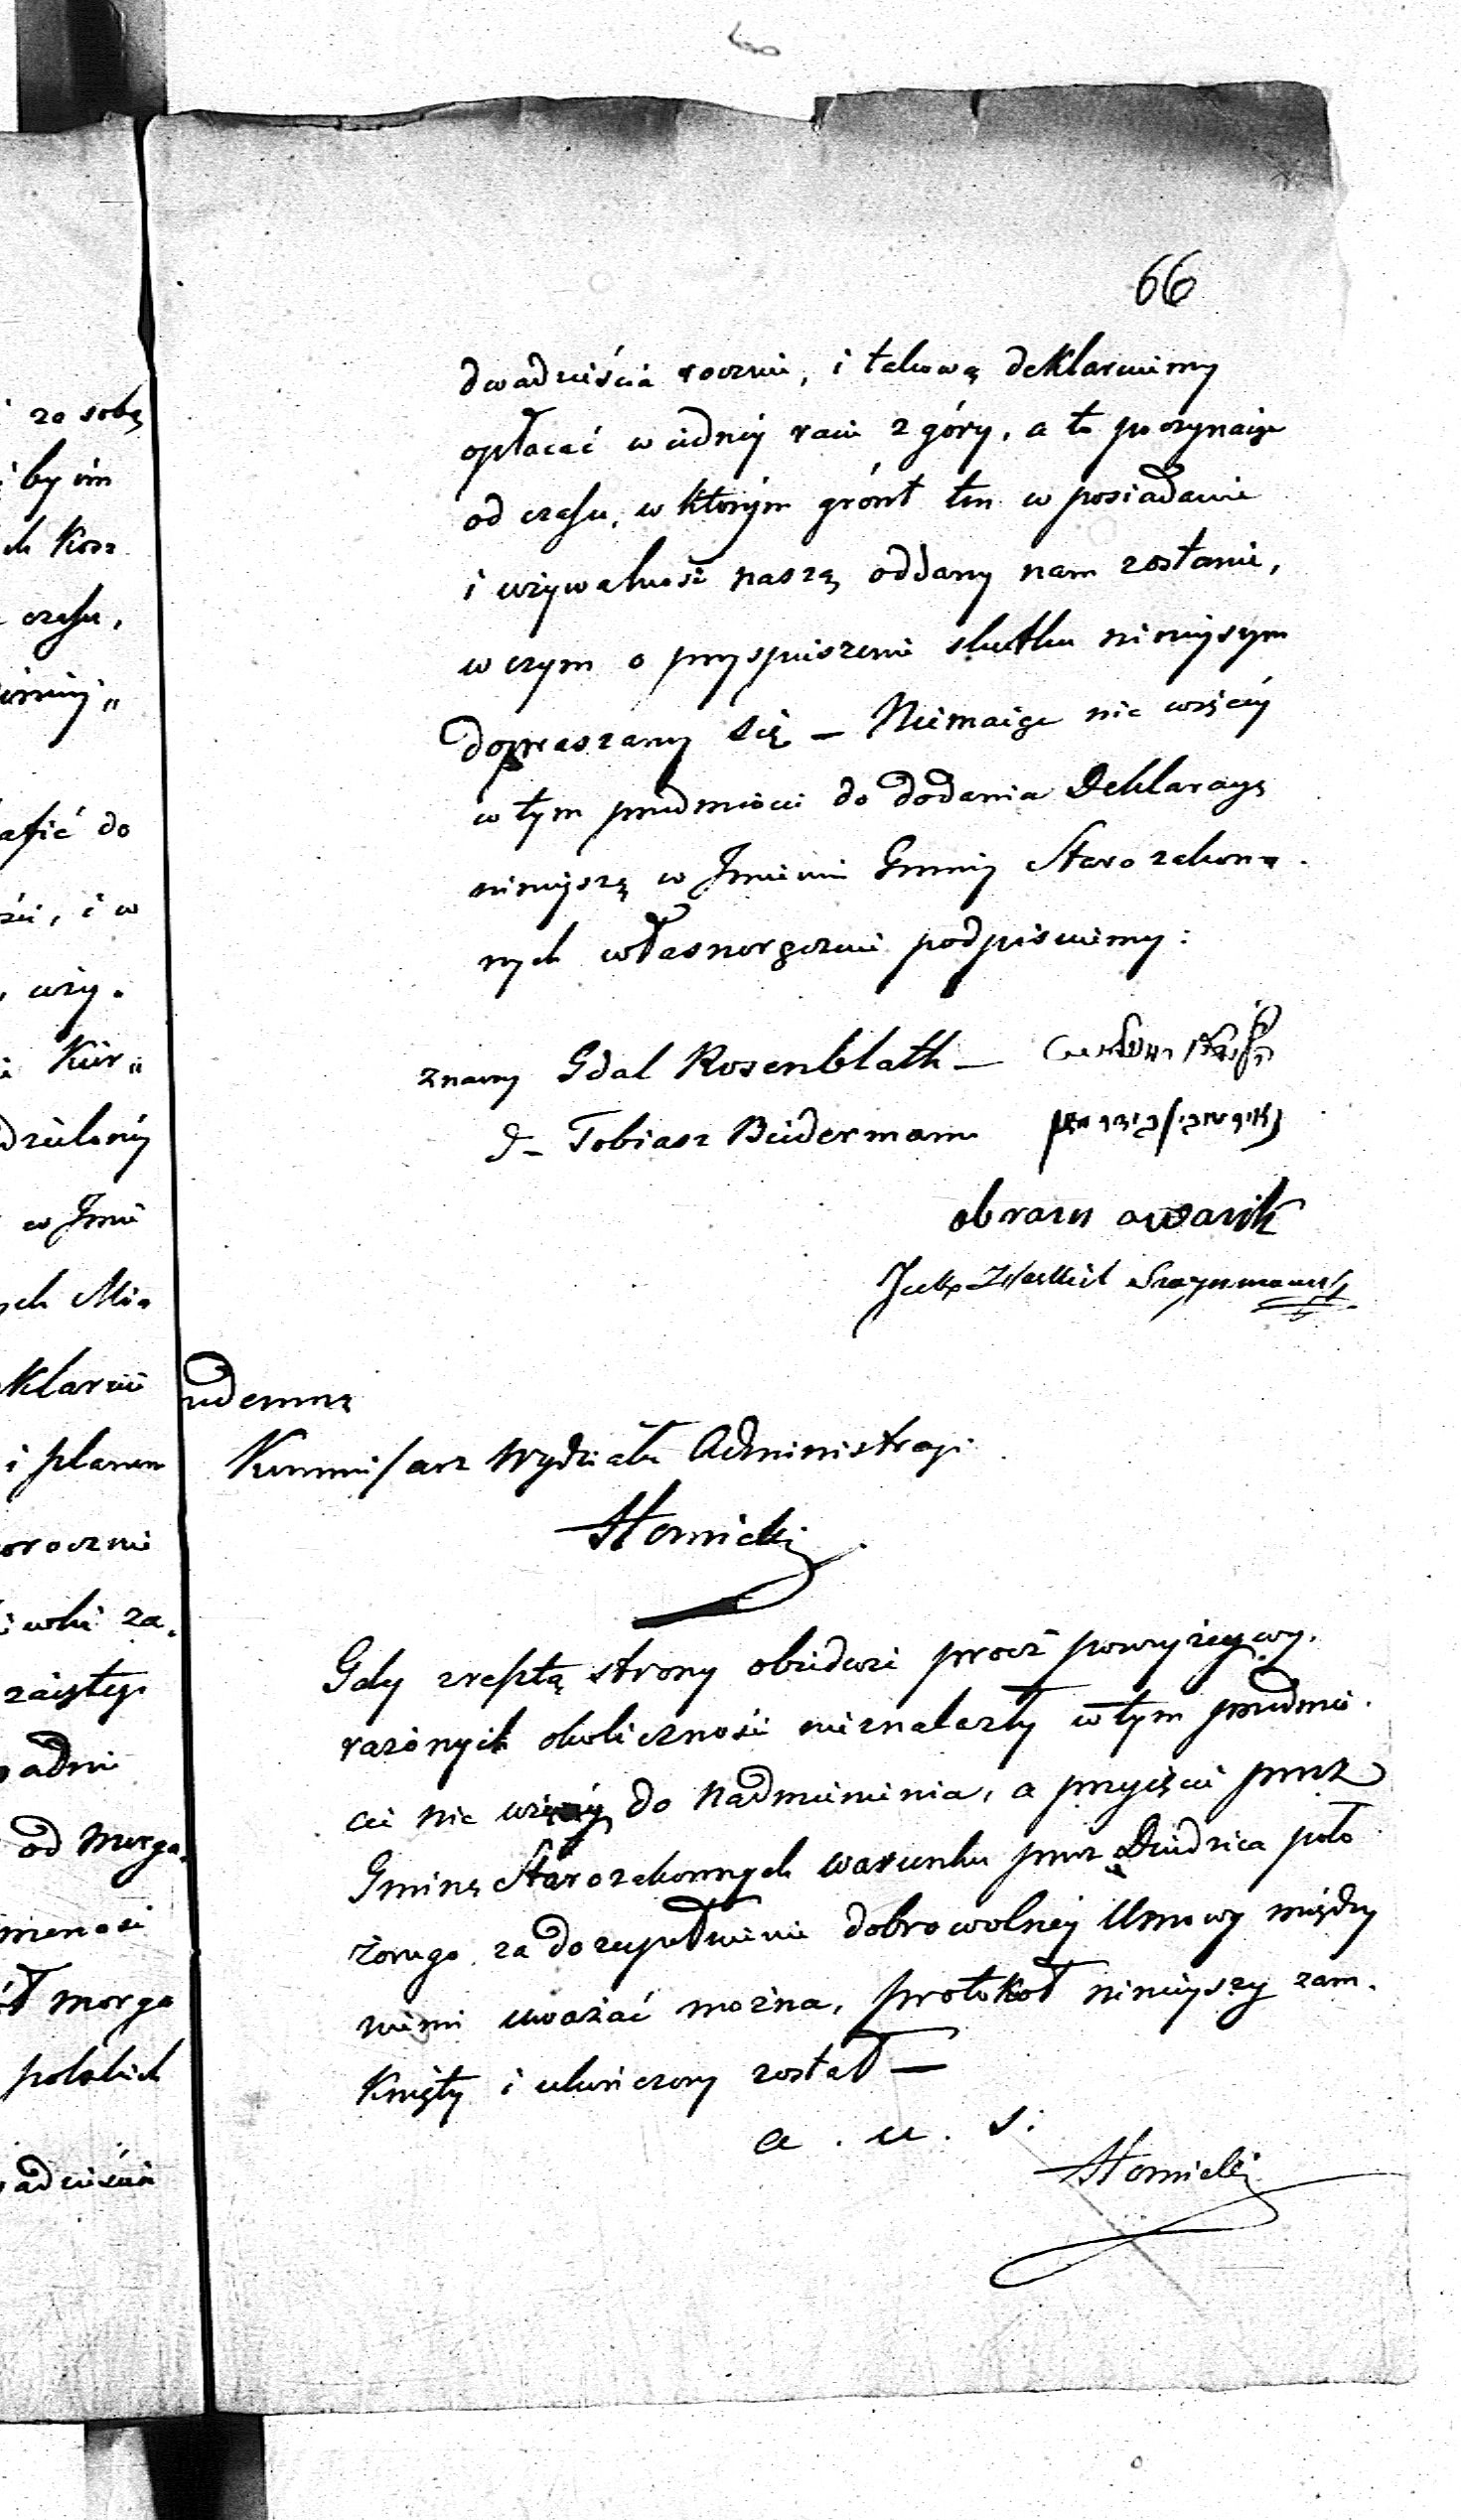 66
dwadzieścia rocznie, i takową deklaruiemy
opłacać w iedney racie z góry, a to poczynaiąc
od czasu, w którym grónt ten w posiadanie
i używalność naszą oddany nam zostanie,
w czym o przyspieszenie skutku ninieyszym
dopraszamy się – Niemaiąc nic więcéy
w tym przedmiocie do dodania Deklaracyą
ninieyszą w Imieniu Gminy Starozakon-
nych własnoręcznie podpisuiemy:
znany Gdal Rosenblath –
d– Tobiasz Beidermann
obram awarik
Szaynmann
zademną
Kommissarz Wydziału Administracyi
Słomicki
Gdy zresztą strony obiedwie procź powyżey wy-
rażonych okoliczności nieznalazły w tym przedmio-
cie nic więcéy do nadmienienia, a przyięcie przez
Gminę Starozakonnych warunku przez Dziedzica poło
żonego za dozupełnienie dobrowolnéy Umowy między
niemi uważać można, protokół ninieyszy zam-
knięty i ukończony został –
a. u. s.
Słomicki
za sobą
by im
czasu,
afić do
uży-
Kur„
dzieloney
w Imie
ych Mia
klaruie
i planem
orocznie
za-
od morga.
morga
polskich
adzieścia